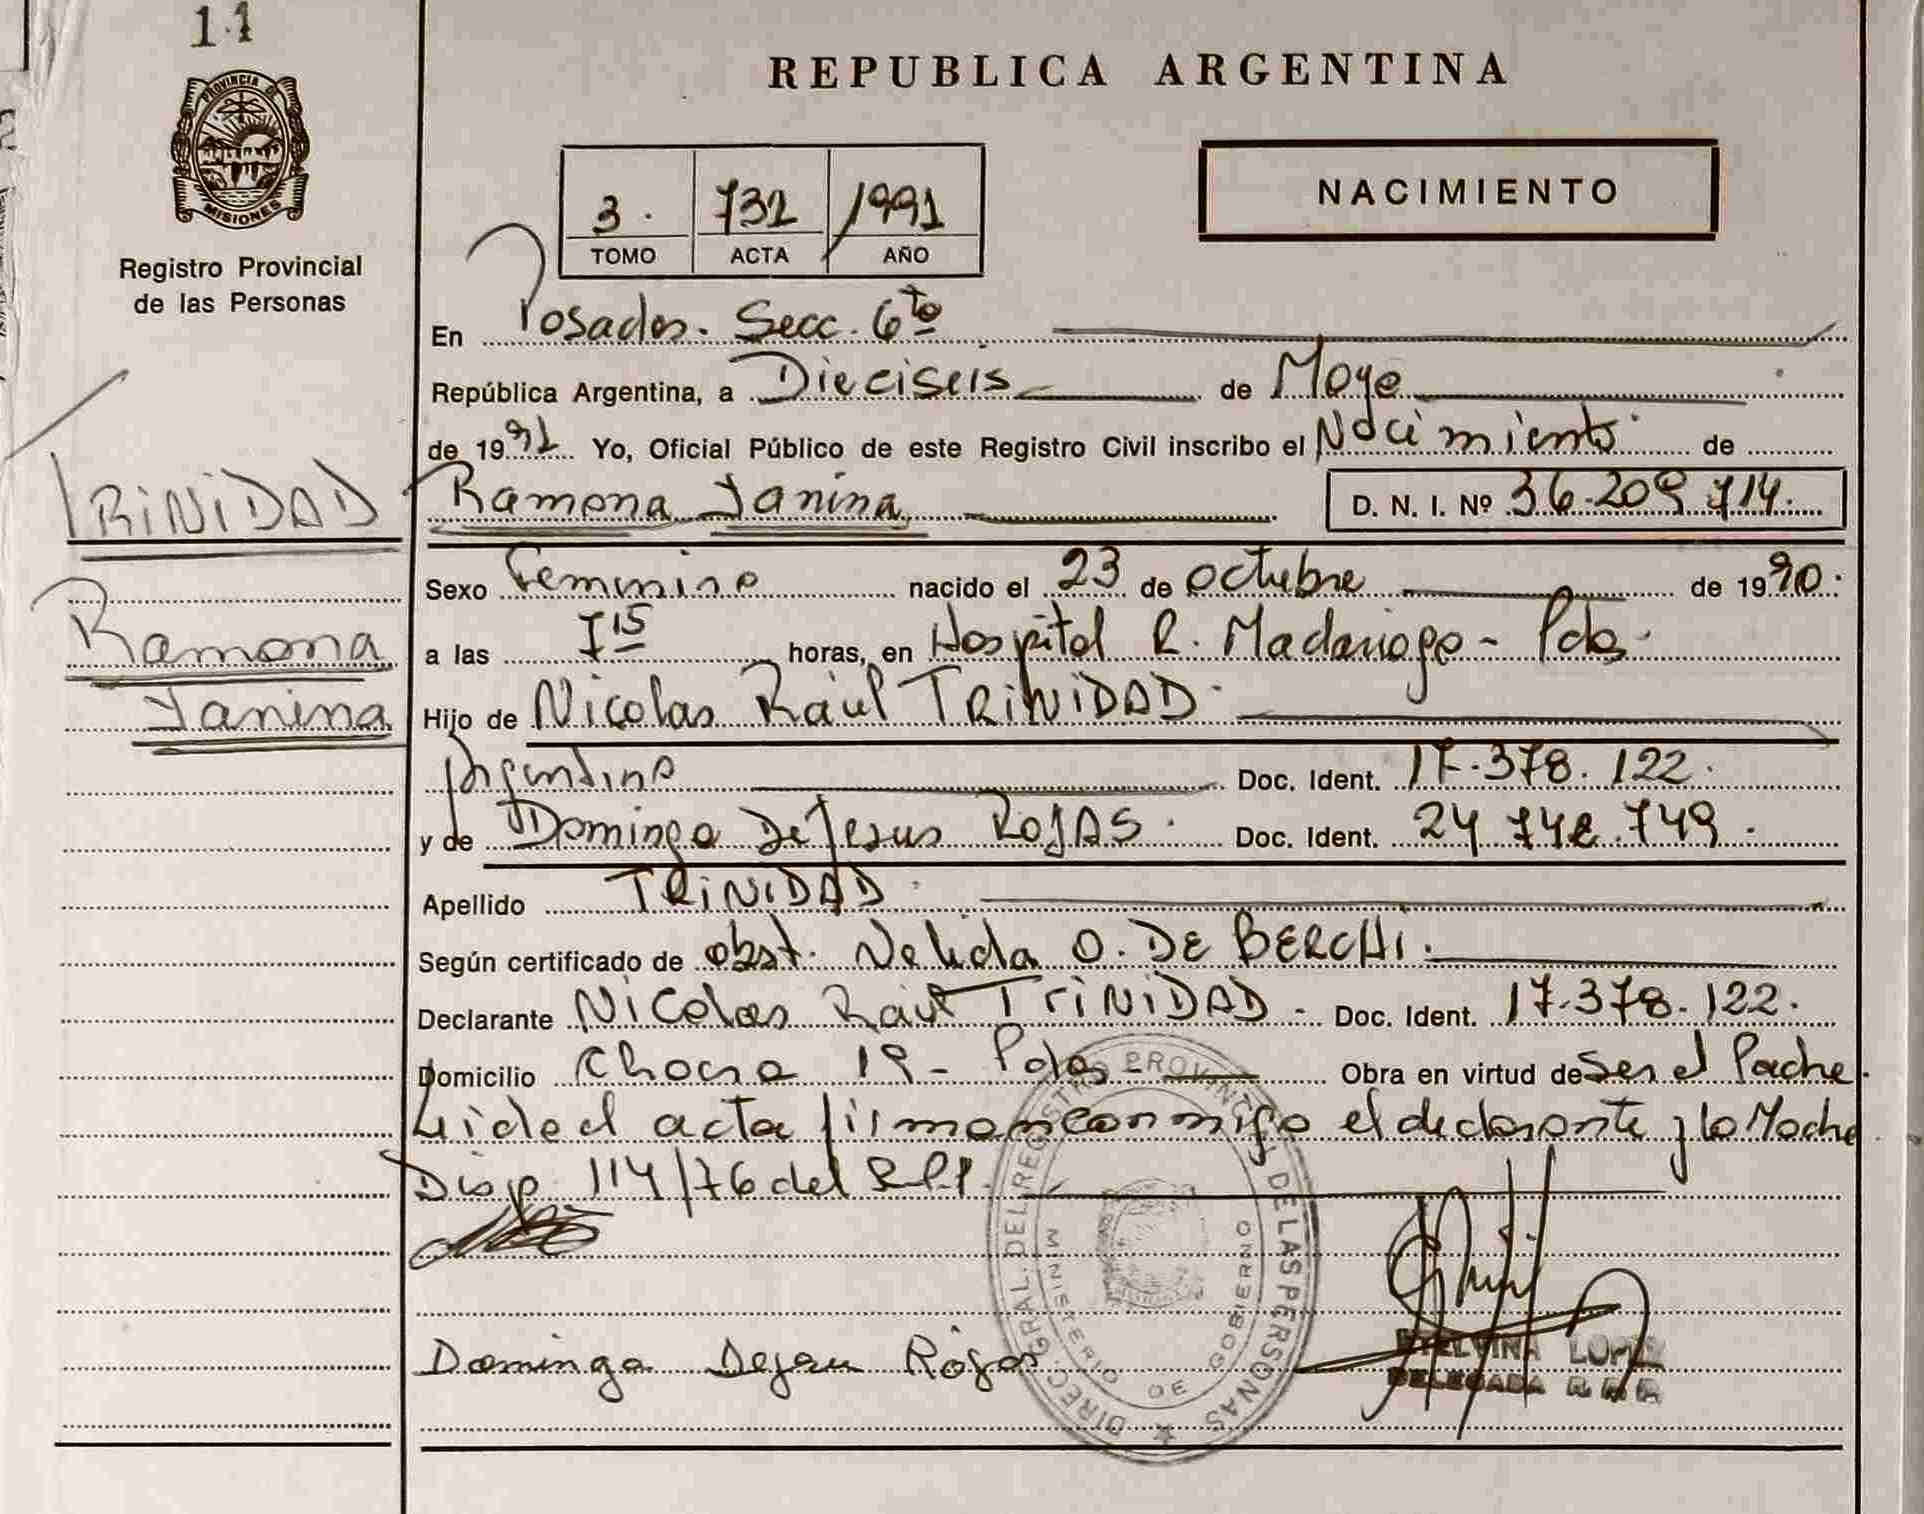 11
PROVINCIA DE
MISIONES
Registro Provincial
de las Personas
REPUBLICA ARGENTINA
3. 732 1991
TOMO ACTA AÑO
NACIMIENTO
En Posadas. Secc. 6ta
República Argentina, a Dieciseis de Mayo
de 1991 Yo, Oficial Público de este Registro Civil inscribo el Nacimiento de
TRINIDAD Ramona Yanina D. N. I. Nº 36.209.714.
Sexo Femenino nacido el 23 de octubre de 1990.
Ramona a las 7 15 horas, en Hospital R. Madariaga - Pdas.
Yanina Hijo de Nicolas Raúl TRINIDAD.
Argentino Doc. Ident. 17.378.122.
y de Dominga De Jesus ROJAS. Doc. Ident. 24.742.749.
Apellido TRINIDAD.
Según certificado de obst. Nelida O. DE BERCHI.
Declarante Nicolas Raúl TRINIDAD. Doc. Ident. 17.378.122.
Domicilio Chacra 19 - Pdas Obra en virtud de Ser el Padre.
Leida el acta firman conmigo el declarante y la Madre
Disp. 114/76 del
Dominga Dejesu Rojas
ETELVINA LOPEZ
DELEGADA
DIREC. GRAL. DEL REGISTRO PROVINCIAL DE LAS PERSONAS
MINISTERIO DE GOBIERNO